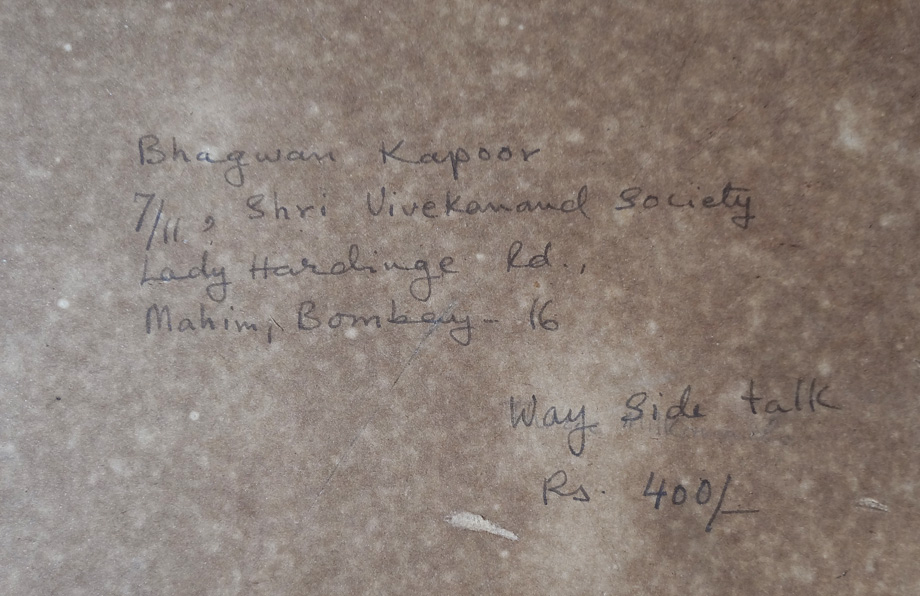 Bhagwan Kapoor
7/11, Shri Vivekanand Society
Lady Hardinge Rd.,
Mahim, Bombay - 16
Way Side talk
Rs. 400/-